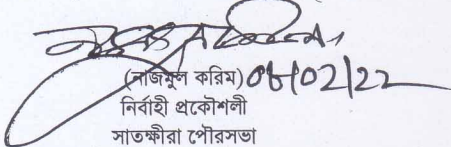 (নাজমুল করিম) 08/02/22
নির্বাহী প্রকৌশলী
সাতক্ষীরা পৌরসভা